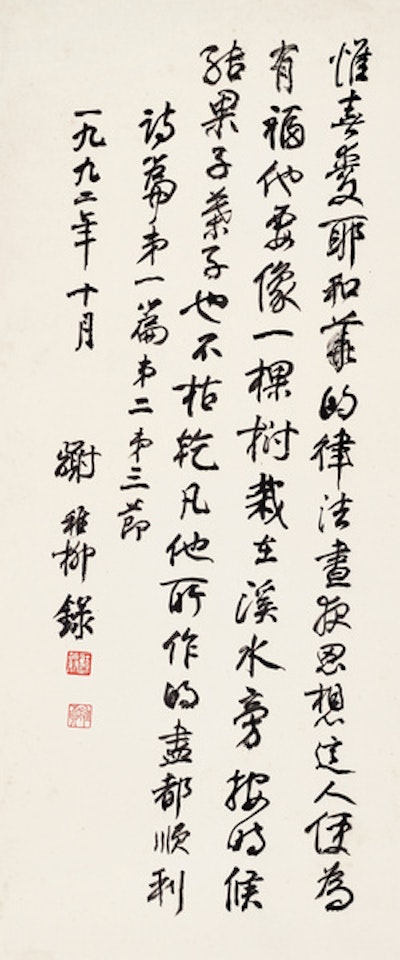 惟喜愛耶和華的律法晝夜思想這人便為
有福他要像一棵樹栽在溪水旁按時候
結果子葉子也不枯乾凡他所作的盡都順利
詩篇第一篇第二第三節
一九九二年十月
謝稚柳錄